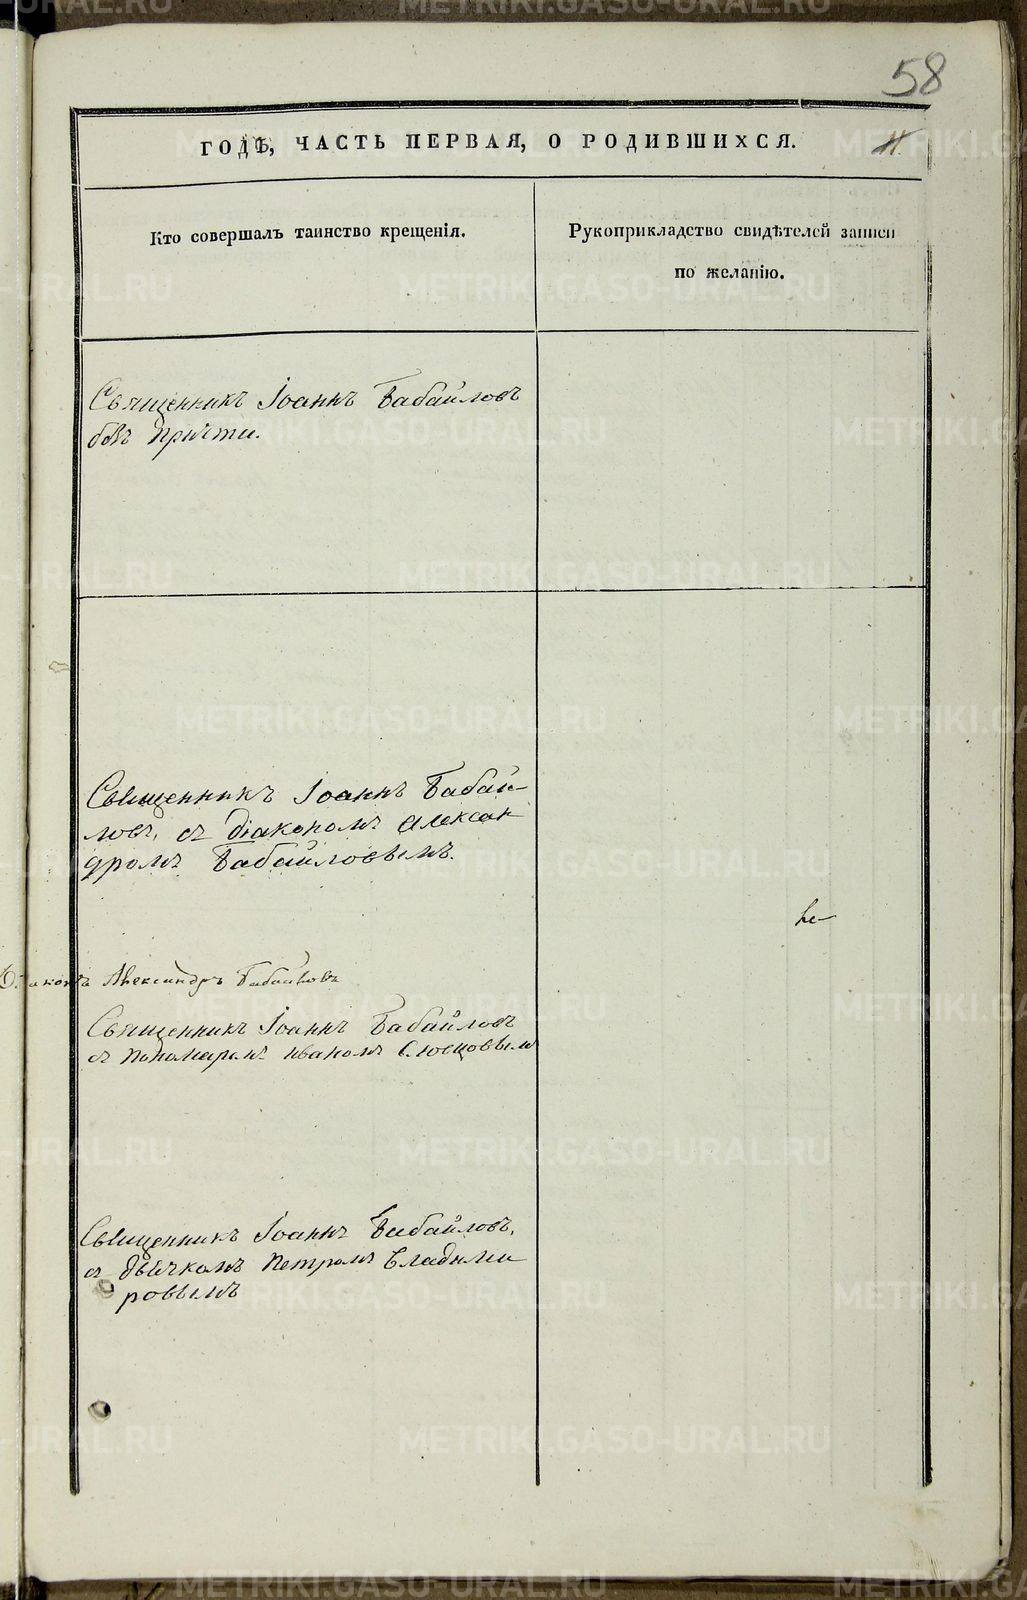 58
ГОДѢ, ЧАСТЬ ПЕРВАЯ, О РОДИВШИХСЯ.
11.
Кто совершалъ таинство крещенія.
Рукоприкладство свидѣтелей записи
по желанію.
Священникъ Іоаннъ Бабайловъ
безъ причта.
Священникъ Іоаннъ Бабай-
ловъ, съ діакономъ Алексан
дромъ Бабайловымъ.
Діаконъ Александръ Бабайловъ
Священникъ Іоаннъ Бабайловъ
съ пономаремъ Иваномъ
Священникъ Іоаннъ Бабайловъ,
съ дьячкомъ Петромъ Владими
ровымъ
METRIKI.GASO-URAL.RU